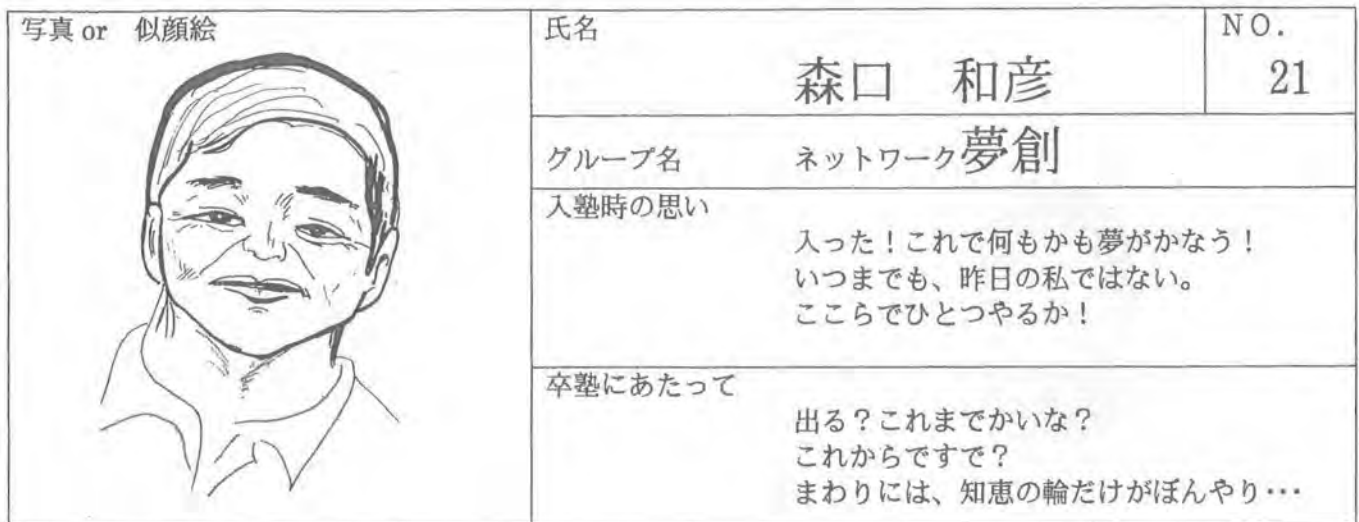 写真 or 似顔絵
氏名
森口 和彦
NO.
21
グループ名 ネットワーク夢創
入塾時の思い
入った！これで何もかも夢がかなう！
いつまでも、昨日の私ではない。
ここらでひとつやるか！
卒塾にあたって
出る？これまでかいな？
これからですで？
まわりには、知恵の輪だけがぼんやり…